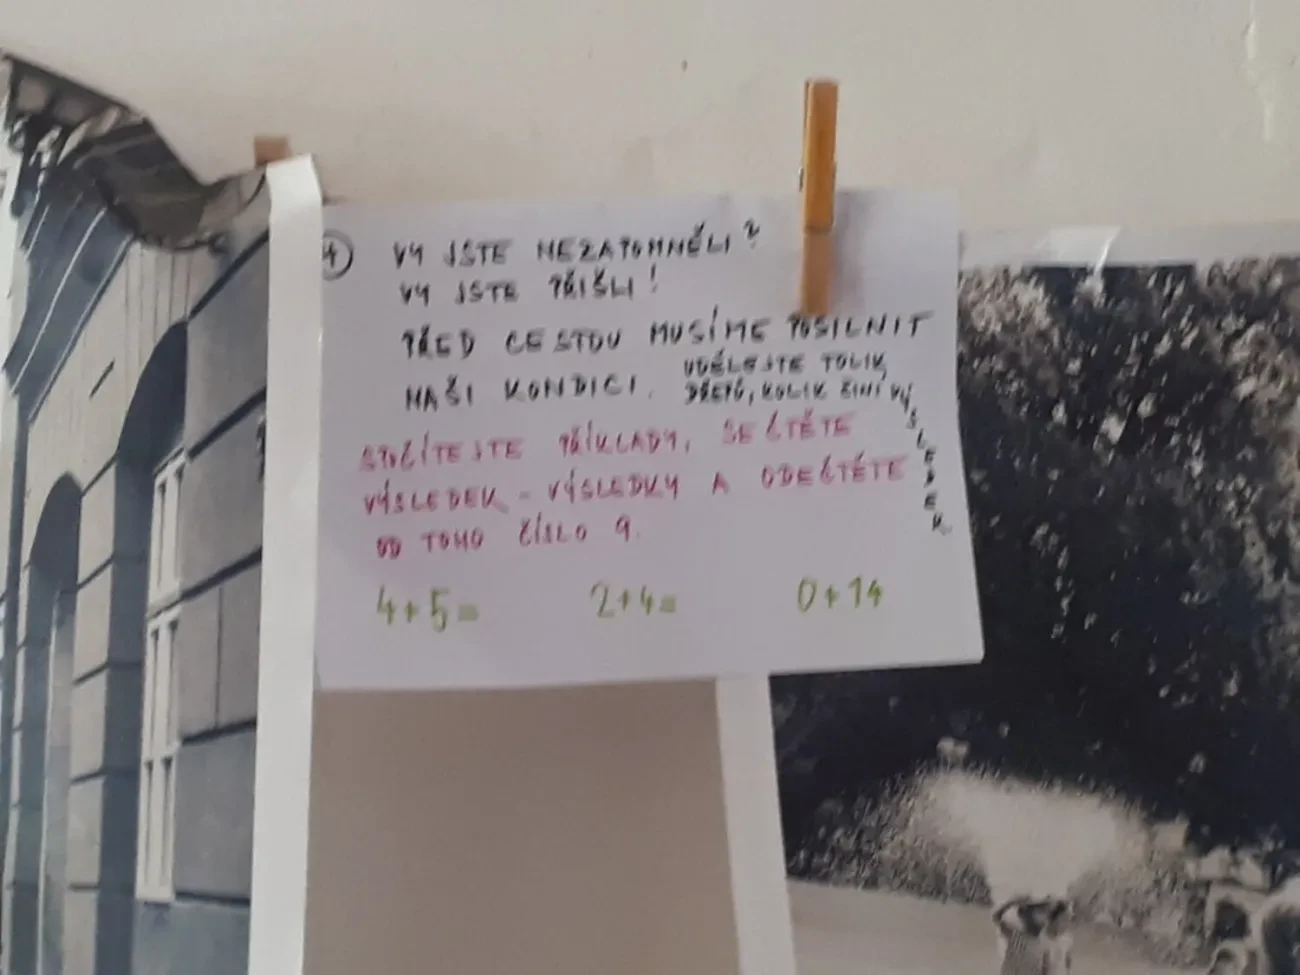 4
VY JSTE NEZAPOMNĚLI?
VY JSTE PŘIŠLI!
PŘED CESTOU MUSÍME POSILNIT
NAŠI KONDICI. UDĚLEJTE TOLIK
DŘEPŮ, KOLIK ČINÍ VÝSLEDEK
SPOČÍTEJTE PŘÍKLADY, SEČTĚTE
VÝSLEDEK - VÝSLEDKY A ODEČTĚTE
OD TOHO ČÍSLO 9.
4+5= 2+4= 0+14